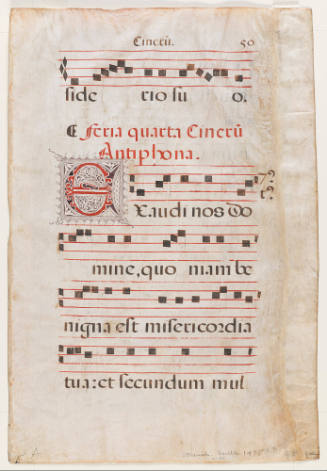 Cinerũ. 50
side rio su o.
€ feria quarta Cinerũ
Antiphona.
EXaudi nos do
mine, quo niam be
nigna est misericordia
tua: et secundum mul